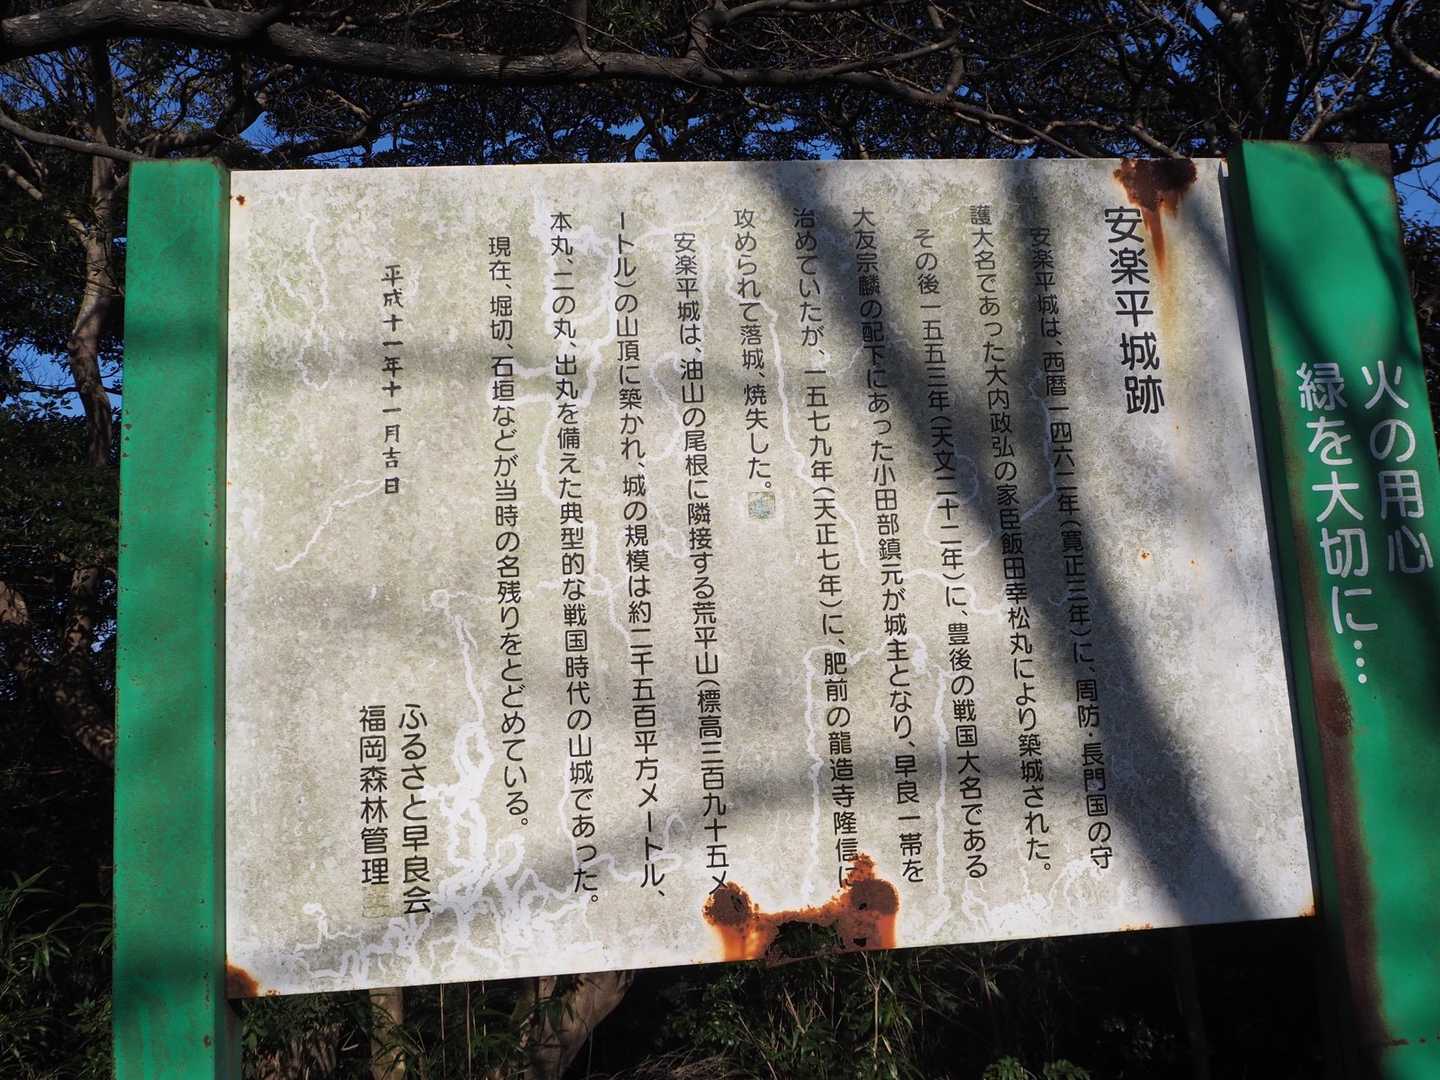 安楽平城跡
安楽平城は、西暦一四六二年(寛正三年)に、周防・長門国の守
護大名であった大内政弘の家臣飯田幸松丸により築城された。
その後一五五三年(天文二十二年)に、豊後の戦国大名である
大友宗麟の配下にあった小田部鎮元が城主となり、早良一帯を
治めていたが、一五七九年(天正七年)に、肥前の龍造寺隆信に
攻められて落城、焼失した。
安楽平城は、油山の尾根に隣接する荒平山(標高三百九十五メ
ートル)の山頂に築かれ、城の規模は約二千五百平方メートル、
本丸、二の丸、出丸を備えた典型的な戦国時代の山城であった。
現在、堀切、石垣などが当時の名残りをとどめている。
平成十一年十一月吉日
ふるさと早良会
福岡森林管理
火の用心
緑を大切に…